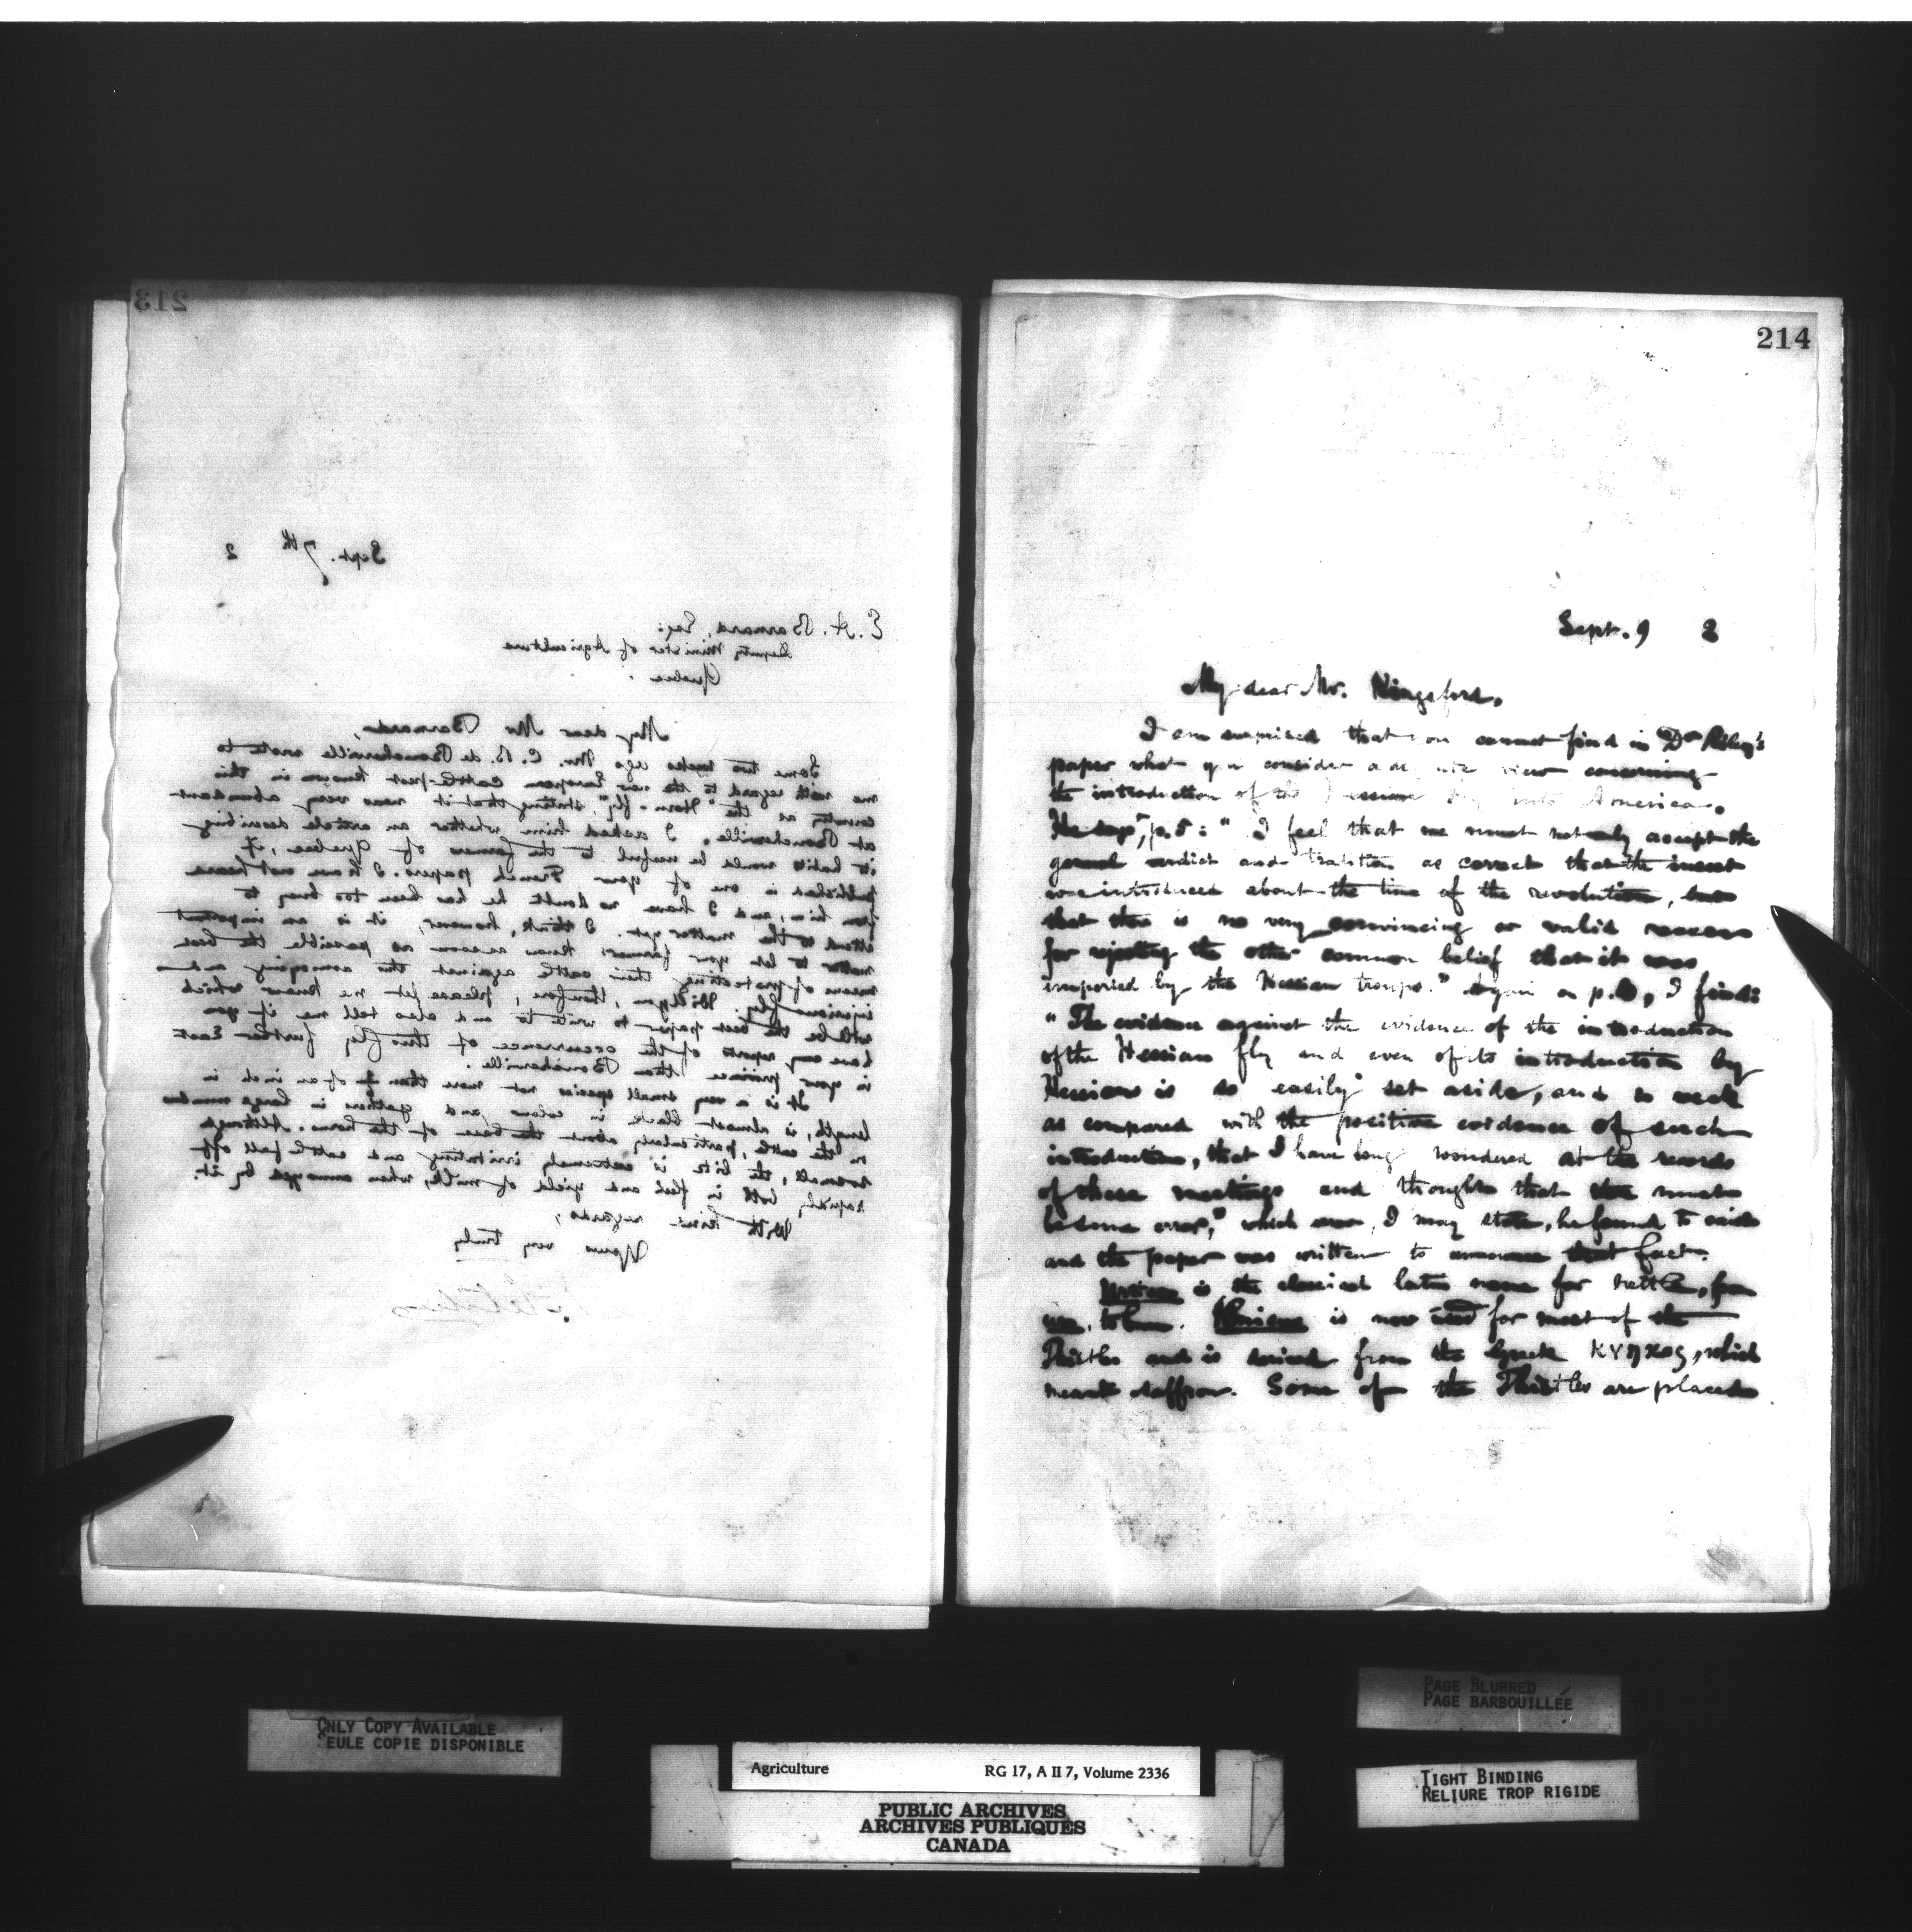 213
Sept. 7th 2
E. A. Barnard, Esq:
Deputy Minister of Agriculture
Quebec.
My dear Mr Barnard,
Some two weeks ago Mr. C. B. de Boucherville wrote to
me with regard to the new European cattle-pest known in this
country as the "Horn-fly", stating that it was very abundant
at Boucherville. I asked him whether an article describing
it habits would be useful to the farmers of Quebec, if
published in one of your French papers. I have not heard
from him, and I have no doubt he has been too busy to
attend to the matter yet. I think, however, it is an important
matter to let your farmers know as soon as possible the best
means of protecting their cattle against this annoying and
injurious fly. Will you, therefore, please let me know which
will be the best paper to write to and also tell me if you
have any reports of the occurrence of this fly further East
in your province than Boucherville.
It is a very small species not more than of an inch in
length, is almost black in colour and gathers in large numbers
on the cattle, particularly about the base of the horns. Although
so small, the bite is extremely irritating and cattle fall off
rapidly both in flesh and yield of milk, when annoyed by it.
With kind regards,
Yours very truly
J. Fletcher
214
Sept. 9 2
My dear Mr. Kingsford,
I am surprised that you cannot find in Dr Riley's
paper what you consider view concerning
the introduction of the Hessian fly into America.
He says, p. 5: "I feel that we must not only accept the
general verdict and tradition as correct that the insect
was introduced about the time of the revolution, but
that there is no very convincing or valid reason
for rejecting the other common belief that it was
imported by the Hessian troops." Again on p. , I find:
"The evidence against the evidence of the introduction
of the Hessian fly and even of its introduction by
Hessians is so easily set aside, and so weak
as compared with the positive evidence of such
introduction, that I have long wondered at the records
of these meetings and thought that there must
be some error," which error, I may state, he found to exist
and the paper was written to announce that fact.
Urtica is the classical latin name for nettle, from
uro, to burn. Cnicus is now used for most of the
Thistles and is derived from the Greek κνηκος, which
meant saffron. Some of the Thistles are placed
ONLY COPY AVAILABLE
SEULE COPIE DISPONIBLE
PAGE BLURRED
PAGE BARBOUILLÉE
Agriculture RG 17, A II 7, Volume 2336
PUBLIC ARCHIVES
ARCHIVES PUBLIQUES
CANADA
TIGHT BINDING
RELIURE TROP RIGIDE